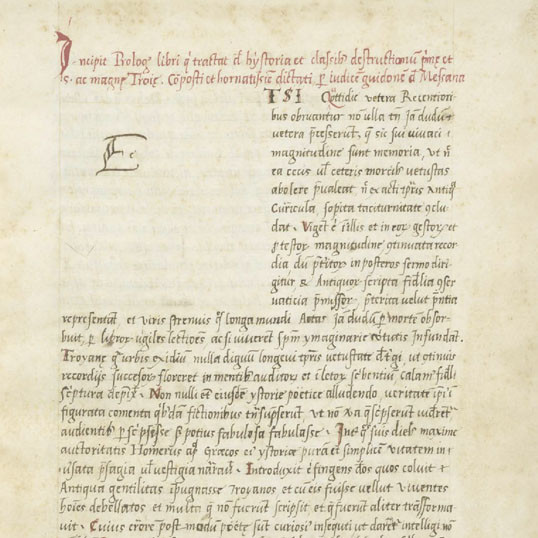 Incipit Prolog' libri q' tractat d' hystoria et classib' destructionū p'me et
s. ac magnę Troię. Cōposti et hornatissīe dictati p' iudicē guidonē d' Messana
TSI Q'ttidie vetera Recentiori
bus obruantur no nulla tn̄ ja dudū
vetera p'cesserūt, q' sic sui vivaci
magnitudine sunt memoria, ut n̄
ea cecus ul' ceteris morib' vetustas
abolere p'valeat
Ee
Curicula, sopita taciturnitate 9clu
dat. Viget ē illis et in eor' gestor' et
p'testor' magnitudine 9tinuata recor
dia dū p'titor' in posteros sermo diri
gitur, & Antiquor' scripta fidelia 9ser
vaticia p'missor', p'terica velut p'ntia
representāt et viris strenuis q's longa mundi Aetas ja dudū p' morte obsor
buit, p' libror' vigiles lectiōes ac si viverēt spm̄ ymaginarie v'tutis infundāt.
Troyanę q' urbis exidiū nulla dignū longevi tp'ris vetustate
recordijs succesor' floreret in mentib' auditor'
scriptura depīx'. Non nulli ēt eiusdē ystorie poetice alludendo, veritatē ip'i'
figurata comenta q'bdā fictionibus
audientib' p'scripsisse s; potius fabulosa fabulasse. Int' q's suis dieb' maxime
auctoritatis Homerus ap' Grecos ei' ystoriae purā et simplicē vitatem in
visata p'sagia ul' vestigia
Introduxit ēt fingens dōs quos coluit
Antiqua gentilitas īpugnasse Troyanos et cū eis fuisse velut viventes
hoīes debellatos et multa q' nō fuerūt scripsit et q' fuerūt aliter trāsforma
vit. Cuius errorē post modū poetę sūt curiosi insequti ut darēt intelligi nō